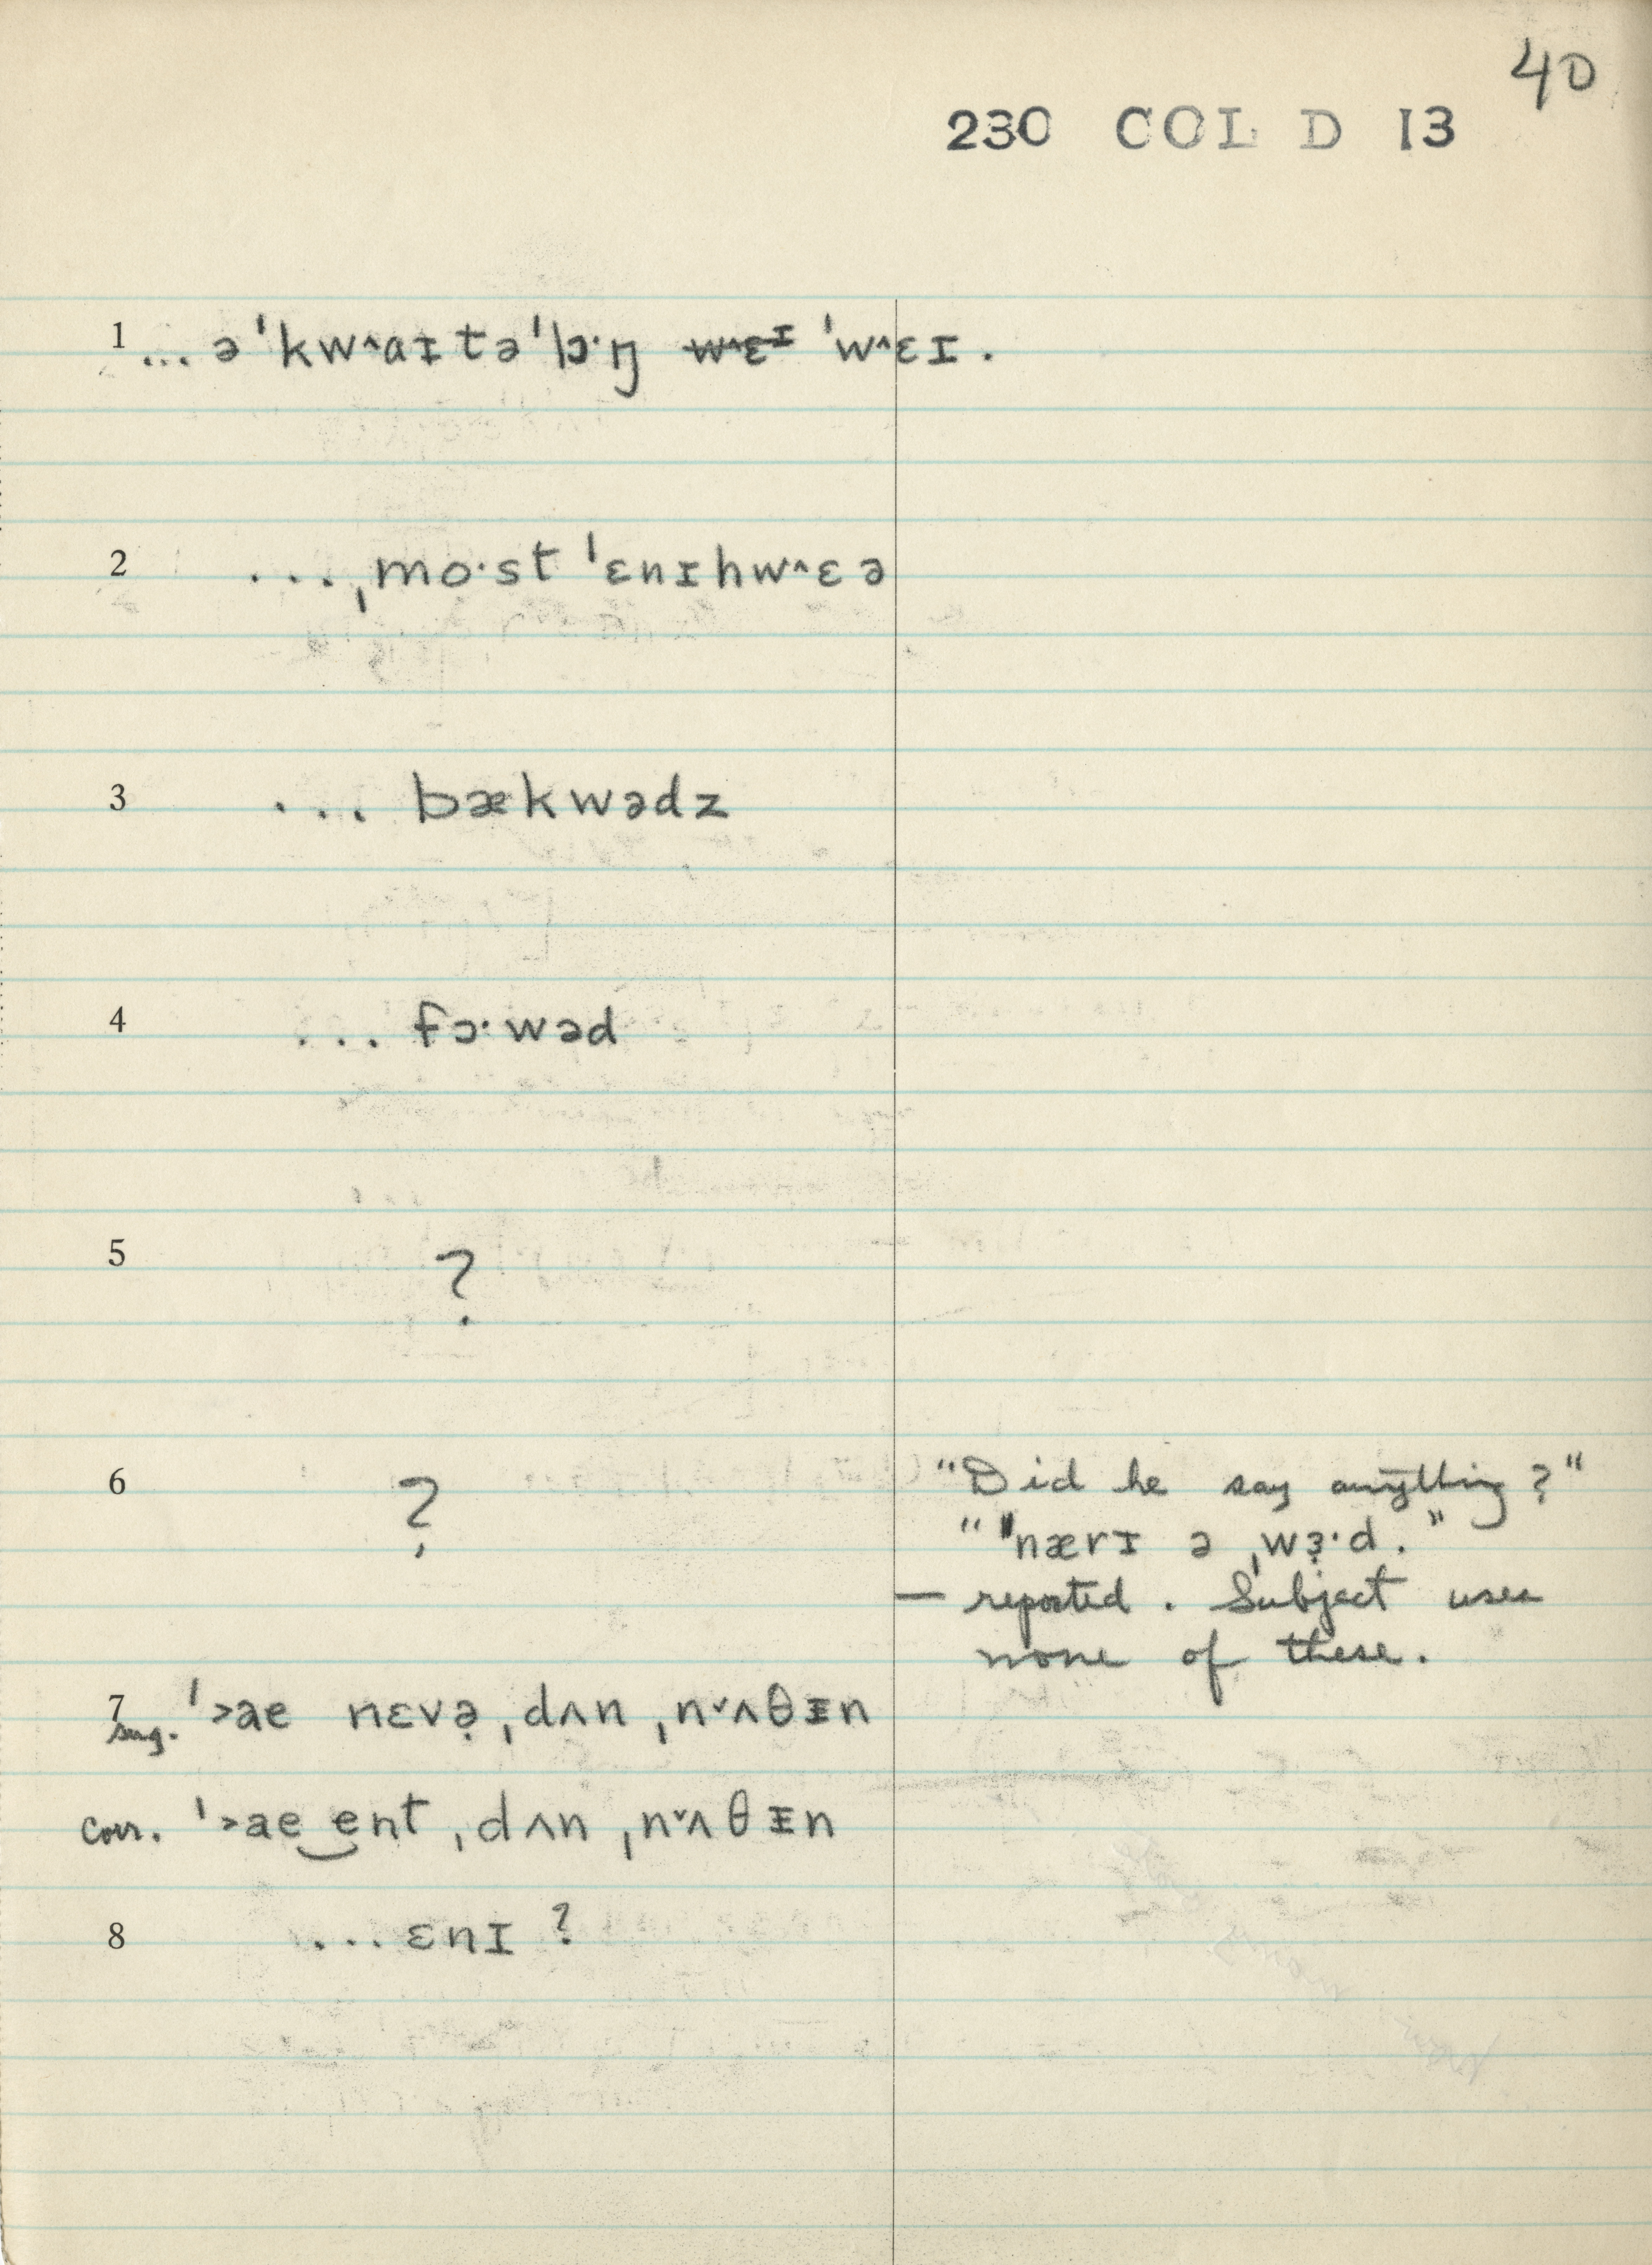 40
230 COL D 13
1 ... əˈkw^aɪtəˈlɔ·ŋ ~~w^ɛɪ~~ ˈw^ɛɪ.
2 ... ˌmo·st ˈɛnɪhw^ɛə
3 ... bækwədz
4 ... fɔ·wəd
5 ?
6 ? "Did he say anything?"
" "nærɪ ə ˌwɜ̣·d."
— reported. Subject uses
none of these.
7 sug. ˈ˃ae nɛvə̣ ˌdʌn ˌnˇʌθɪn
Corr. ˈ˃ae‿ent ˌdʌn ˌnˇʌθɪn
8 ... ɛnɪ ?